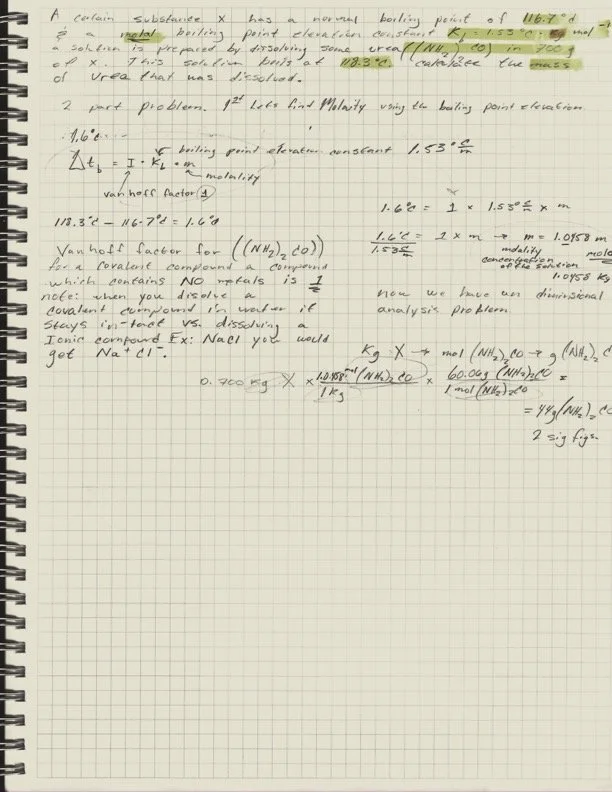 A certain substance X has a normal boiling point of 116.7°c
& a molal boiling point elevation constant Kb = 1.53°c · kg mol⁻¹
a solution is prepared by dissolving some urea ((NH2)2 CO) in 700 g
of X. This solution boils at 118.3°C. calculate the mass
of urea that was dissolved.
2 part problem. 1st Lets find Molaity using the boiling point elevation
1.6°c
Δtb = I · Kb · m
boiling point elevation constant 1.53°C/m
molality
van hoff factor 1
118.3°c − 116.7°c = 1.6°c
Van hoff factor for ((NH2)2 CO)
for a covalent compound a compound
which contains NO metals is 1
note: when you disolve a
covalent compound in water it
stays in-tact vs. dissolving a
Ionic compound Ex: NaCl you would
get Na+ Cl-.
1.6°c = 1 × 1.53°C/m × m
1.6°c/1.53°C/m = 1 × m → m = 1.0458 m
molality
concentration
of the solution
1.0458 Kg
now we have an diminsional
analysis problem
Kg X → mol (NH2)2 CO → g (NH2)2 C
0.700 Kg X × 1.0458 mol (NH2)2 CO/1 Kg × 60.06g (NH2)2CO/1 mol (NH2)2CO =
= 44g (NH2)2 CO
2 sig figs